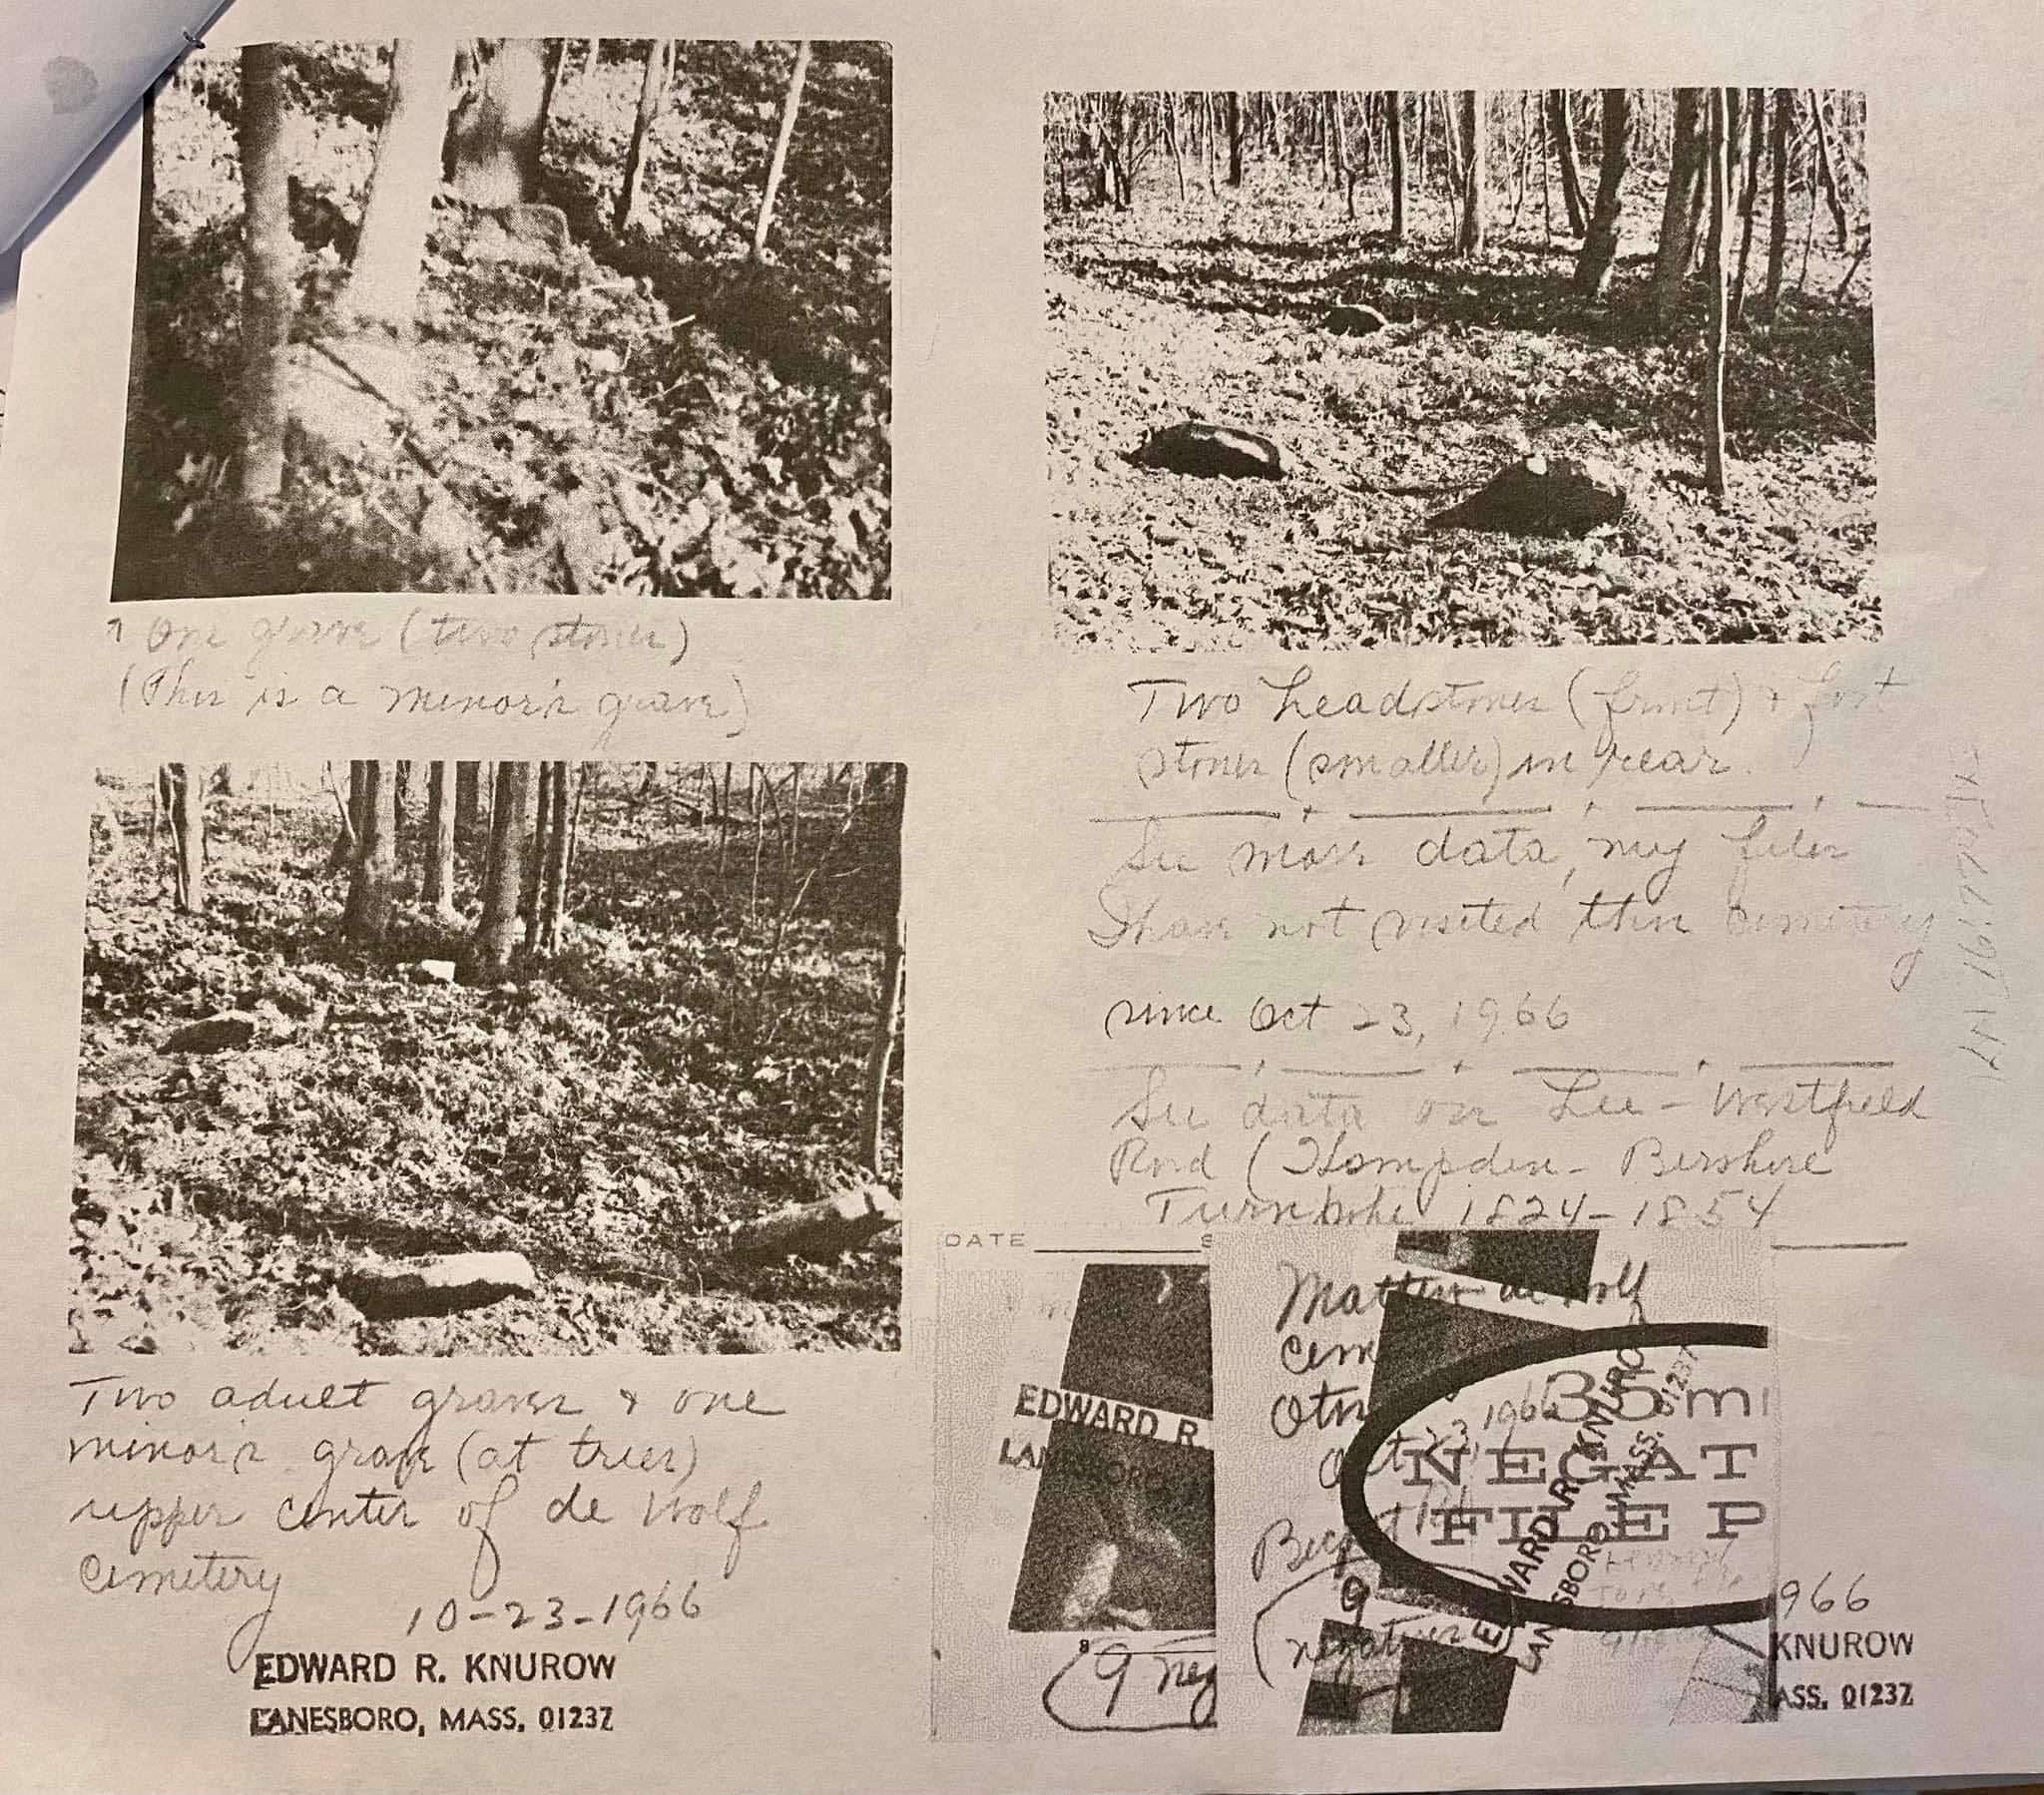 One grave (two stones)
(This is a minor's grave)
Two headstones (front) & foot
stones (smaller) in rear.
See more data, my files
I have not visited this cemetery
since Oct 23, 1966
See data on Lee-Westfield
Road (Hampden-Bershire
Turnpike 1824-1854
Two adult graves & one
minor's grave (at trees)
upper center of de Wolf
Cemetery
10-23-1966
EDWARD R. KNUROW
LANESBORO, MASS. 01237
DATE
EDWARD R.
LANESBORO
8
(9 neg
Matthew de Wolf
Cem
Otis
Oct 23, 1966
Becket
9
(negatives)
35mm
NEGAT
FILE P
EDWARD R. KNUROW
LANESBORO, MASS. 01237
966
KNUROW
ASS. 01237